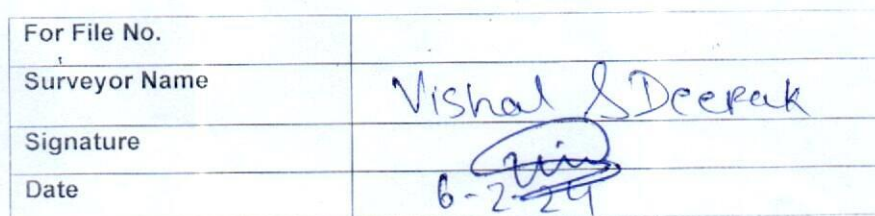 For File No.
Surveyor Name Vishal & Deepak
Signature
Date 6-2-24